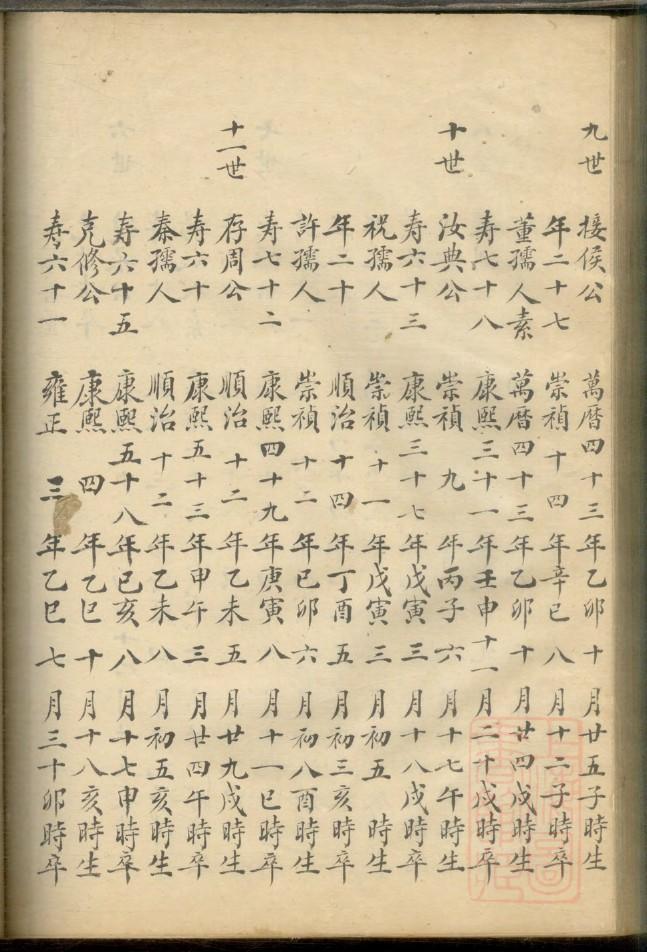 九世 接侯公 萬曆四十三年乙卯十月廿五子時生
年二十七 崇禎十四年辛巳八月十二子時卒
董孺人素 萬曆四十三年乙卯十月廿四戌時生
寿七十八 康熙三十一年壬申十一月二十戌時卒
十世 汝典公 崇禎九年丙子六月十七午時生
寿六十三 康熙三十七年戊寅三月十八戌時卒
祝孺人 崇禎十一年戊寅三月初五時生
年二十 順治十四年丁酉五月初三亥時卒
許孺人 崇禎十二年己卯六月初八酉時生
寿七十二 康熙四十九年庚寅八月十一巳時卒
十一世 存周公 順治十二年乙未五月廿九戌時生
寿六十 康熙五十三年甲午三月廿四午時卒
秦孺人 順治十二年乙未八月初五亥時生
寿六十五 康熙五十八年己亥八月十七申時卒
克修公 康熙四年乙巳十月十八亥時生
寿六十一 雍正三年乙巳七月三十卯時卒